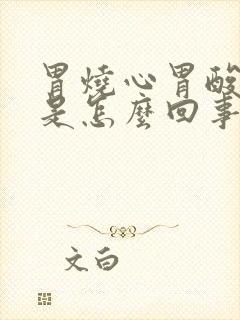 胃燒心胃酸
是怎麼回事
文白